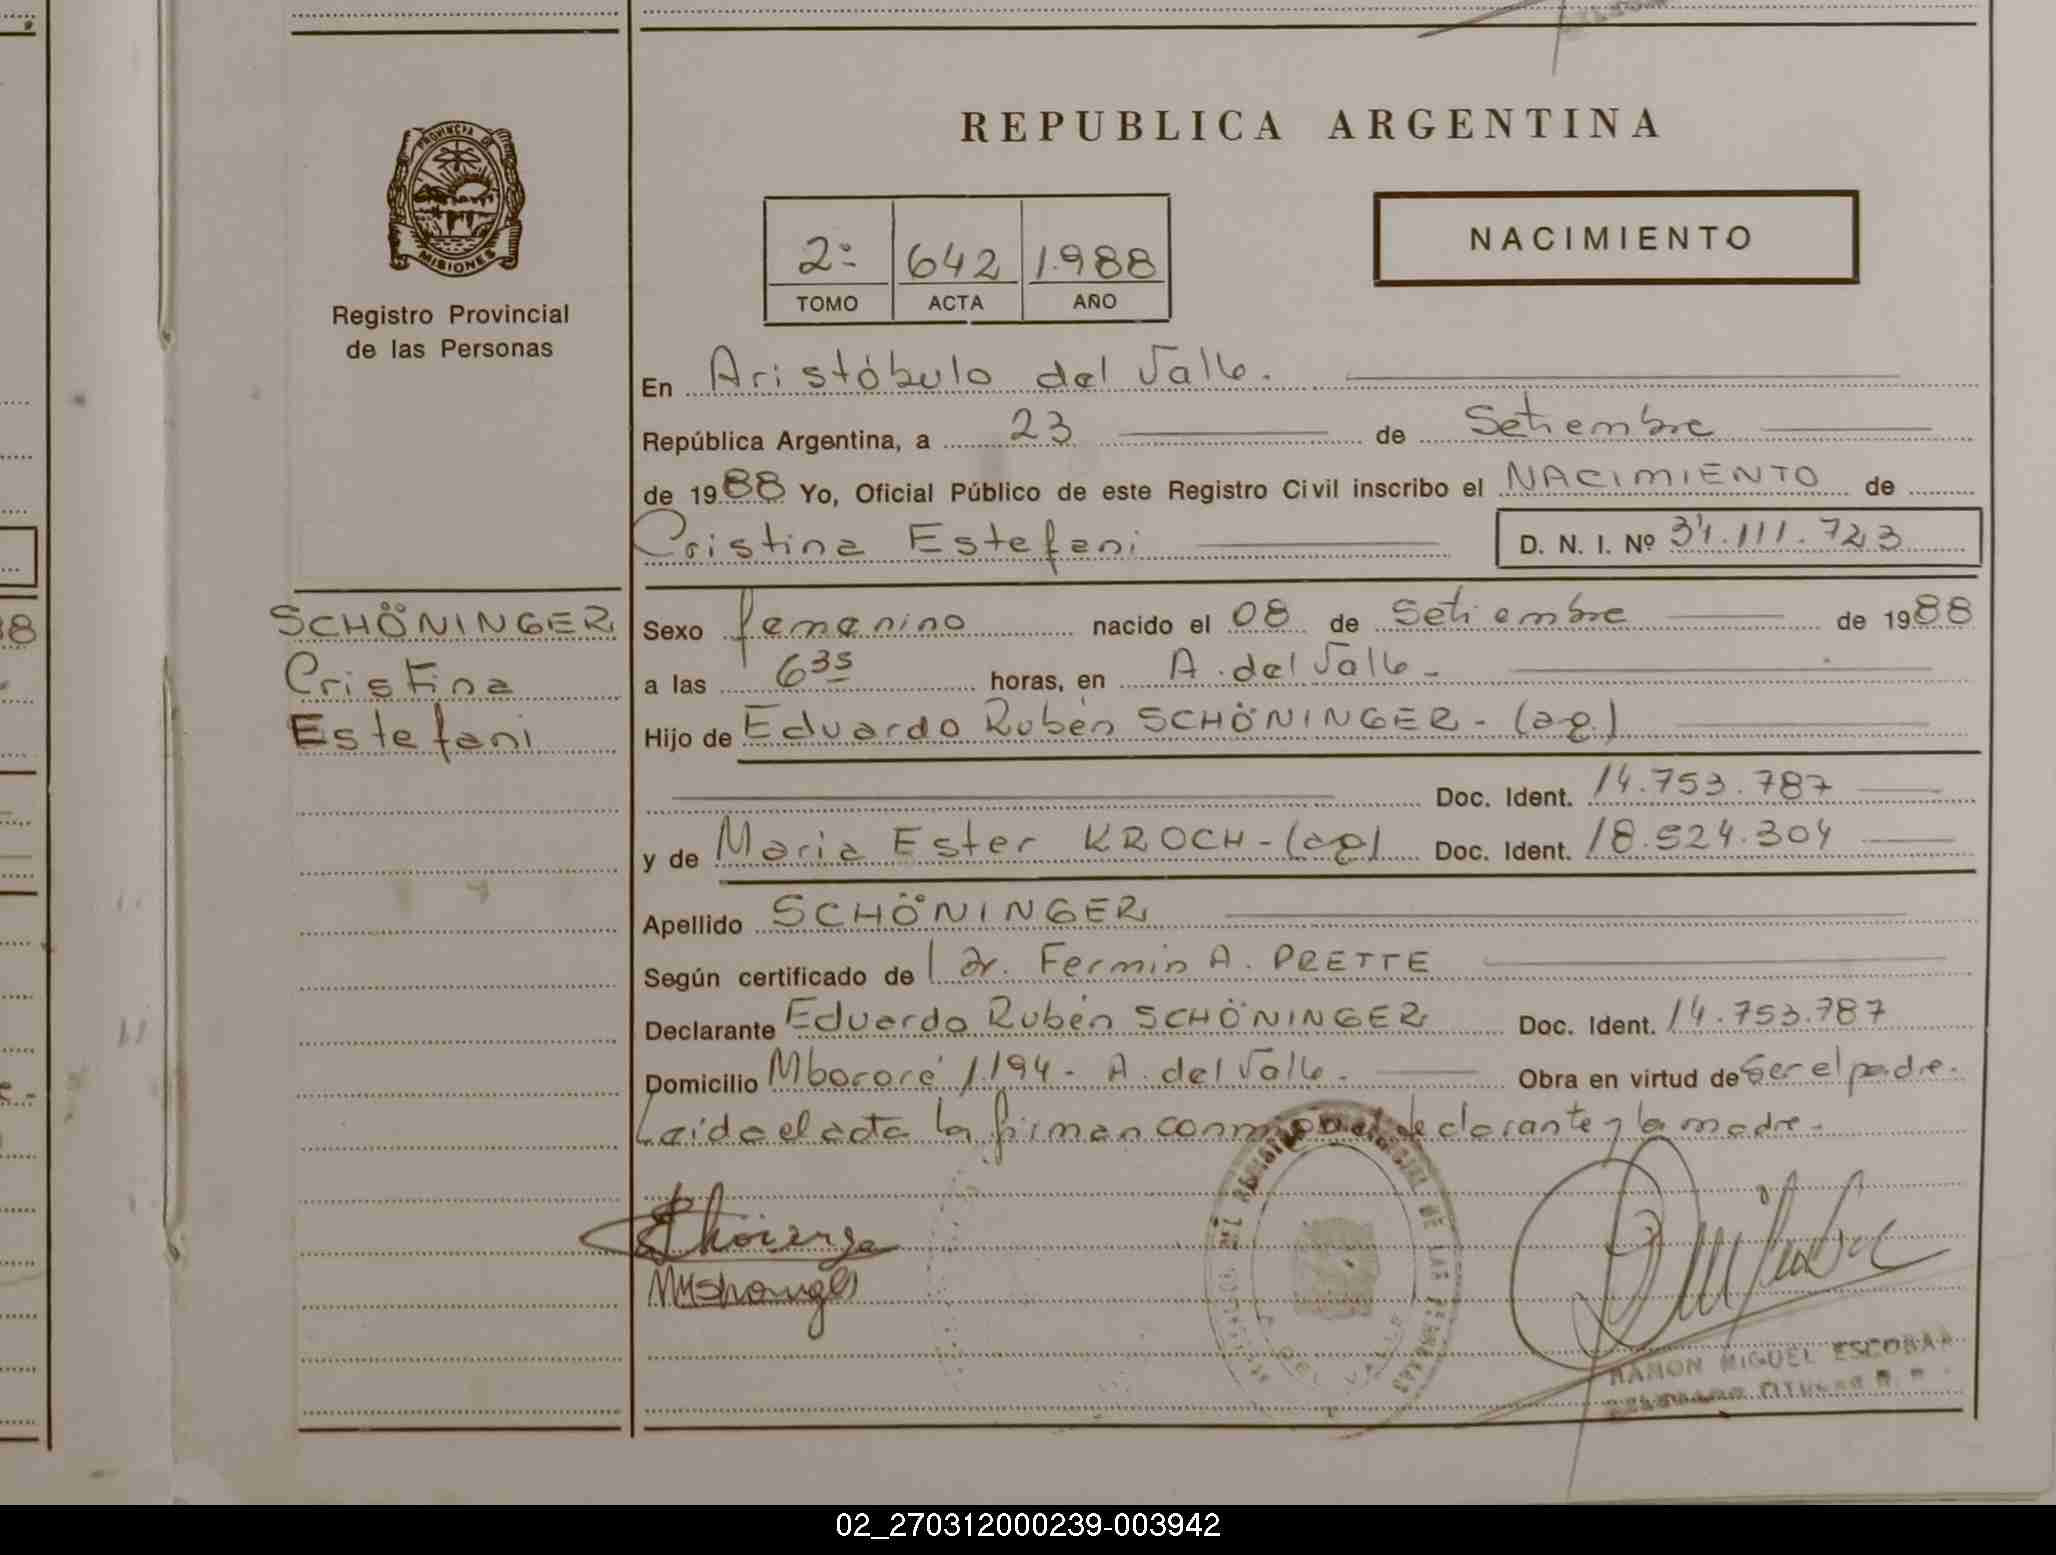 REPUBLICA ARGENTINA
PROVINCIA DE
MISIONES
Registro Provincial
de las Personas
2º 642 1.988
TOMO ACTA AÑO
NACIMIENTO
En Aristóbulo del Valle.
República Argentina, a 23 de Setiembre
de 1988 Yo, Oficial Público de este Registro Civil inscribo el NACIMIENTO de
Cristina Estefani D. N. I. Nº 34.111.723
SCHÖNINGER
Cristina
Estefani
Sexo femenino nacido el 08 de Setiembre de 1988
a las 6 35 horas, en A. del Valle-
Hijo de Eduardo Rubén SCHÖNINGER - (ag.)
Doc. Ident. 14.753.787
y de Maria Ester KROCH - (ag) Doc. Ident. 18.524.304
Apellido SCHÖNINGER
Según certificado de Dr. Fermin A. PRETTE
Declarante Eduardo Rubén SCHÖNINGER Doc. Ident. 14.753.787
Domicilio Mbororé 1.194 - A. del Valle. Obra en virtud de Ser el padre.
Leida el acta la firman conmigo el declarante y la madre.
RAMON MIGUEL ESCOBAR
02_270312000239-003942